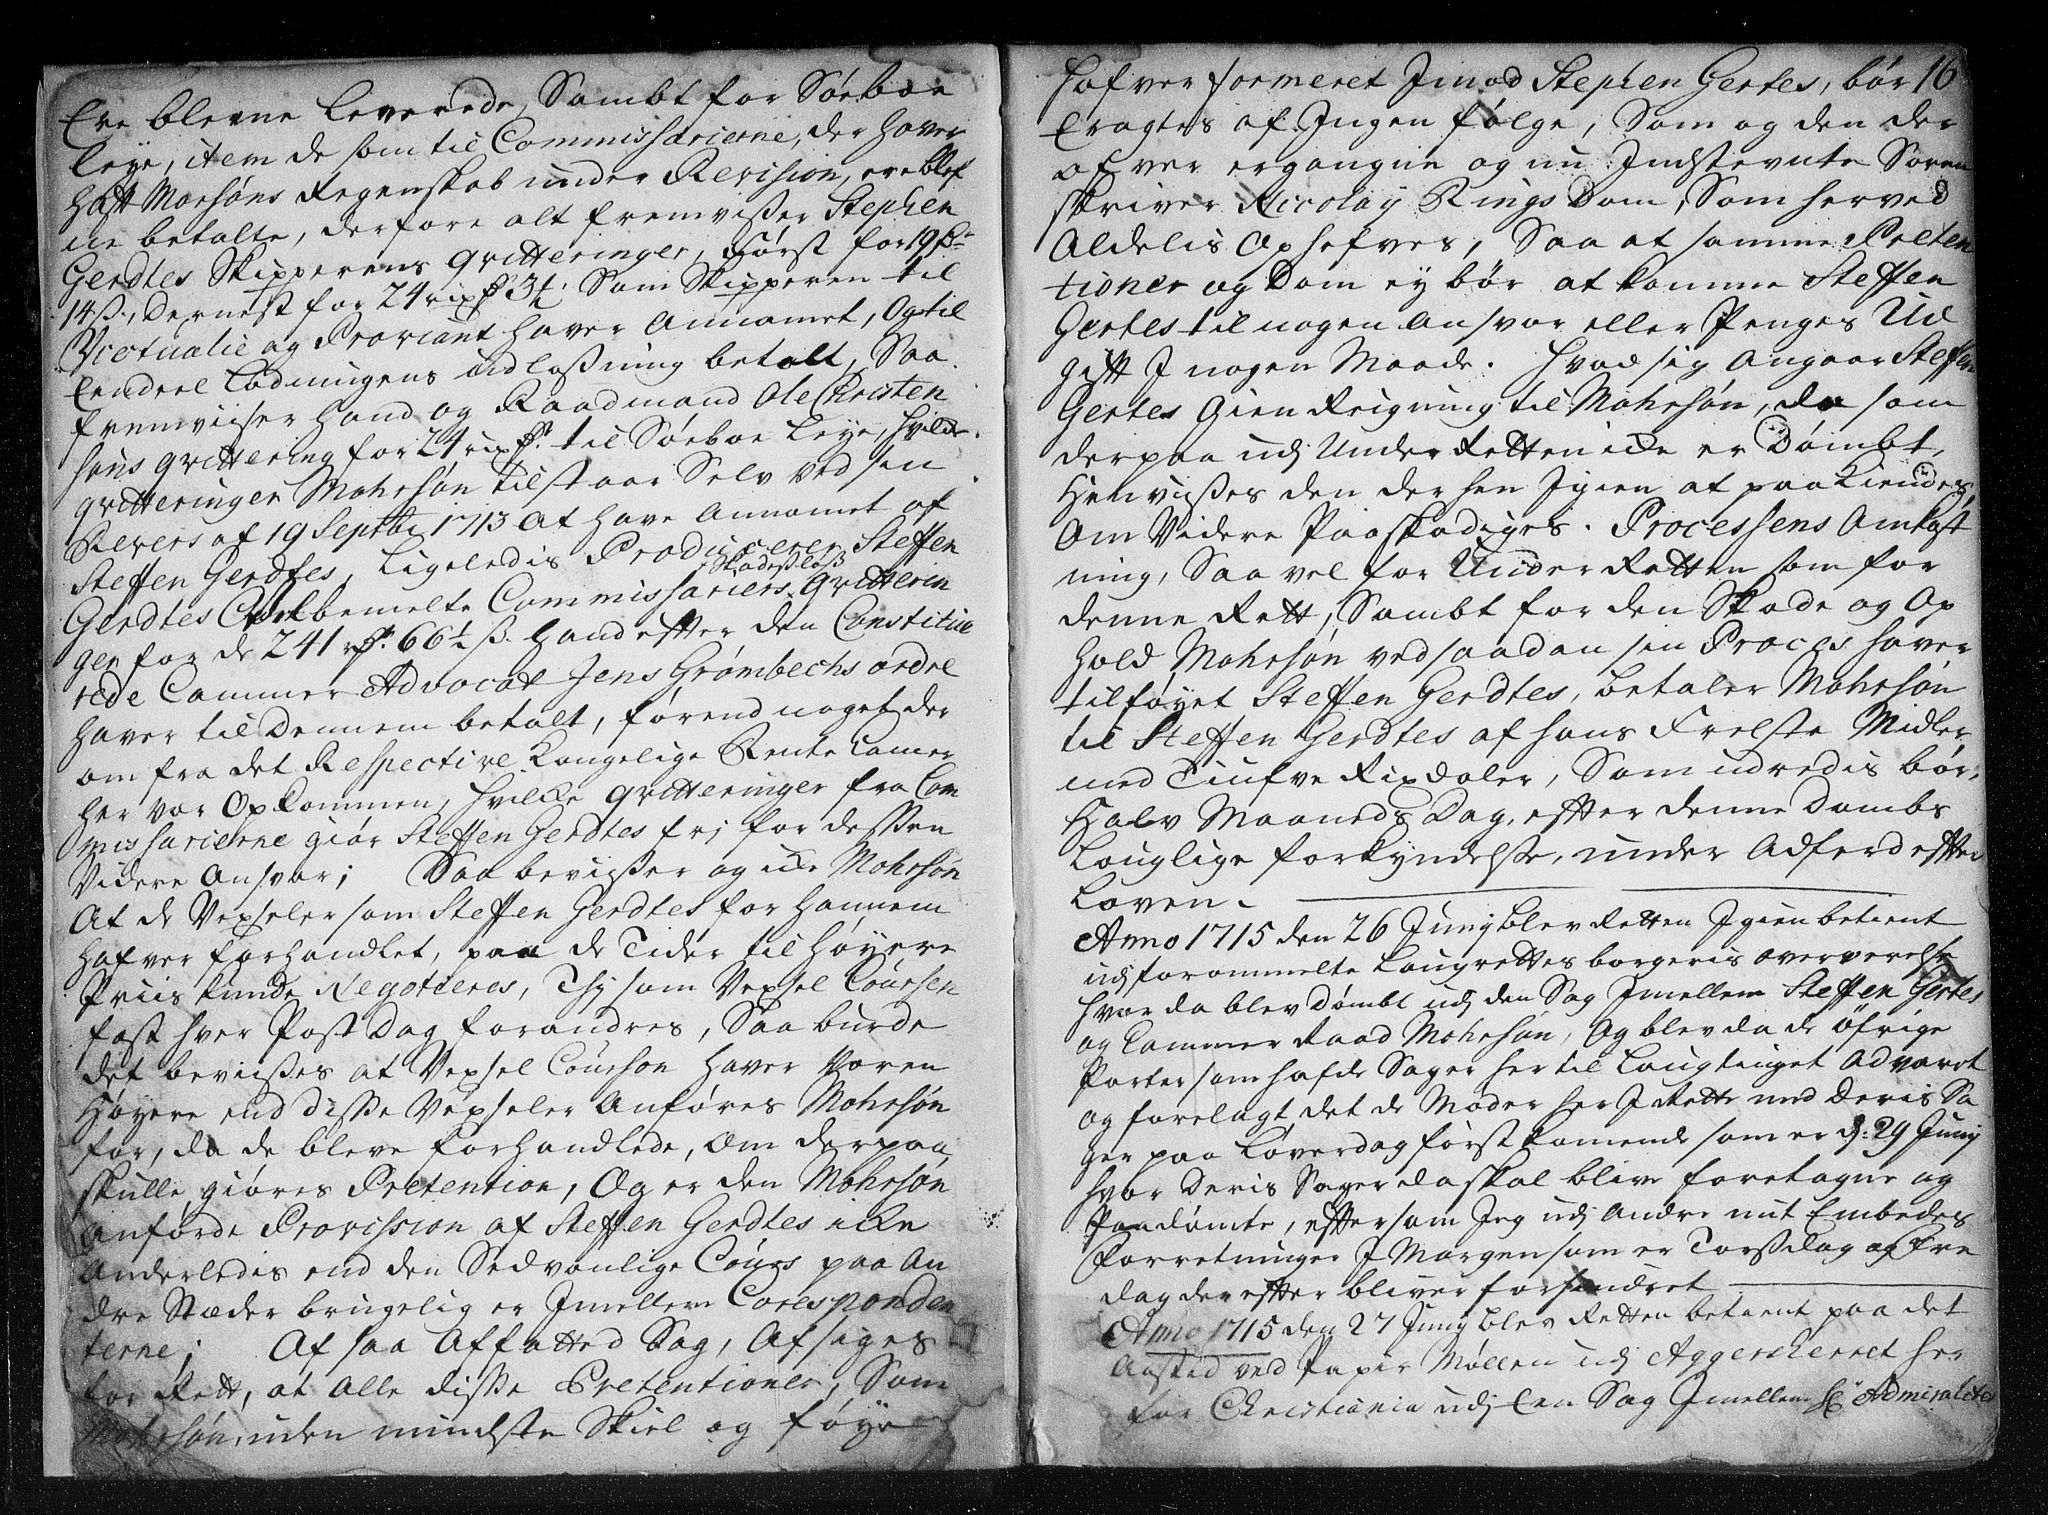 Ere blevne leverede, Sambt for Søeboe
leye, item de som til Commissarierne, der haver
hafft Morsøns Regenskab under Revision, ere blef
ne betalte, derfore alt fremvisser Stephen
Gerdtes Skipperens qvitteringer, Først for 19
14 ß, Dernest for 24 rix 3 Som Skipperen til
Victualie og Proviant haver Annamet, Og til
Endeel Ladningens udlossning betalt, Saa
fremviser hand og Raadmand Ole Christen
søns qvittering for 24 rix til Søeboe Leye, hvilke
qvitteringer Mohrsøn tilstaar Selv ved sin
Revers af 19 Septbr 1713 At have Annamet af
Steffen Gerdtes, Ligeledis Producerer Steffen
Skadessløss
Gerdtes bemelte Commissariers qvitterin
ger for de 241 r 66½ ß. hand efter den Constitue
rede Cammer Advocat Jens Grømbechs ordre
haver til Dennem betalt, førend noget der
om fra det Respective Kongelige Rente Camer
her var Opkommen, hvilke qvitteringer fra Com
missarierne giør Steffen Gerdtes fri for dessen
Videre Ansvar; Saa bevisser og icke Mohrsøn
At de Vexseler som Steffen Gerdtes for Hannem
hafver forhandlet, paa de Tider til høyere
Priis kunde Negotieres, Thj som Vexsel Coursen
fast hver Post Dag forandres, Saa burde
det bevisses at Vexsel Coursen haver voren
Høyere end disse Vexseler Anføres Mohrsøn
for, da de bleve forhandlede, om derpaa
skulle giøres Pretention, Og er den Mohrsøn
Anførde Provission af Steffen Gerdtes icke
Anderledis end den Sedvanlige Cours paa An
dre Stæder brugelig er Jmellem Coresponden
terne; Af saa Affatted Sag, Afsiges
for Rett, at Alle disse Pretentioner, Som
Mohrsøn uden mindste Skiel og føye
hafver formeret Jmod Stephen Gertes, bør 16
Eragtes af Jngen følge, Som og den der
ofver ergangne og nu Jndstevnte Soren
skriver Nicolay Rings Dom, Som herved
Aldelis Ophefves, Saa at samme Preten
tioner og Dom ey bør at komme Steffen
Gertes til nogen Ansvar eller Penges Ud
gifft J nogen Maade. Hvad sig Angaar Steffen
Gertes Gien Reigning til Mohrsøn, da som
derpaa udj Under Retten icke er Dømbt,
Henvisses den der hen Jgien at paakiendes,
Om Videre Paaskadiges. Processens Omkost
ning, Saa vel for Under Retten som for
denne Rett, Sambt for den Skade og Op
hold Mohrsøn ved saadan sin Proces haver
tilføyet Steffen Gerdtes, betaler Mohrsøn
til Steffen Gerdtes af hans Frelste Midler
med Tiufve Rixdaler, Som udredis bør,
Halv Maaneds Dag, efter denne Dombs
Louglige forkyndelse, under Adferd efter
Loven.
Anno 1715 den 26 Junij blev Retten Jgien betient
udj forommelte Laugrettes borgeris oververelse
hvor da blev Dømbt udj den Sag Jmellem Steffen Gertes
og Cammer Raad Mohrsøn, Og blev da de øfrige
Parter som hafde Sager her til Laugtinget Advaret
og forelagt, det de Møder her J Rette med deris Sa
ger paa Løverdag først kommende som er d. 29 Junij
hvor Deris Sager da skal blive foretagne og
Paadømte, efftersom Jeg udj Andre mit Embedes
Forretninger J Morgen som er Torssdag og Fre
dag der effter bliver forhindret
Anno 1715 den 27 Junij blev Retten betient paa det
Aasted ved Papir Møllen udj Aggersherret her
for Christiania udj Een Sag Jmellem Admiralitet